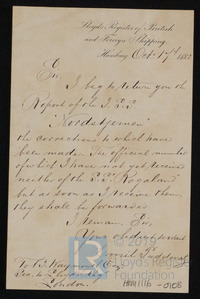 Lloyd's Register of British
and Foreign Shipping.
Hamburg Oct. 17th 1882
Sir,
I beg to return you the
Report of the S.S.
"Nordstjernen"
the corrections to which have
been made. The official number
of which I have not yet received
neither of the S.S. "Rosalind"
but as soon as I receive them
they shall be forwarded
I remain, Sir,
Your obedient servant
To B. Waymouth Esq.
London
© 2019
Lloyd's Register
Foundation
HAM1116-0108